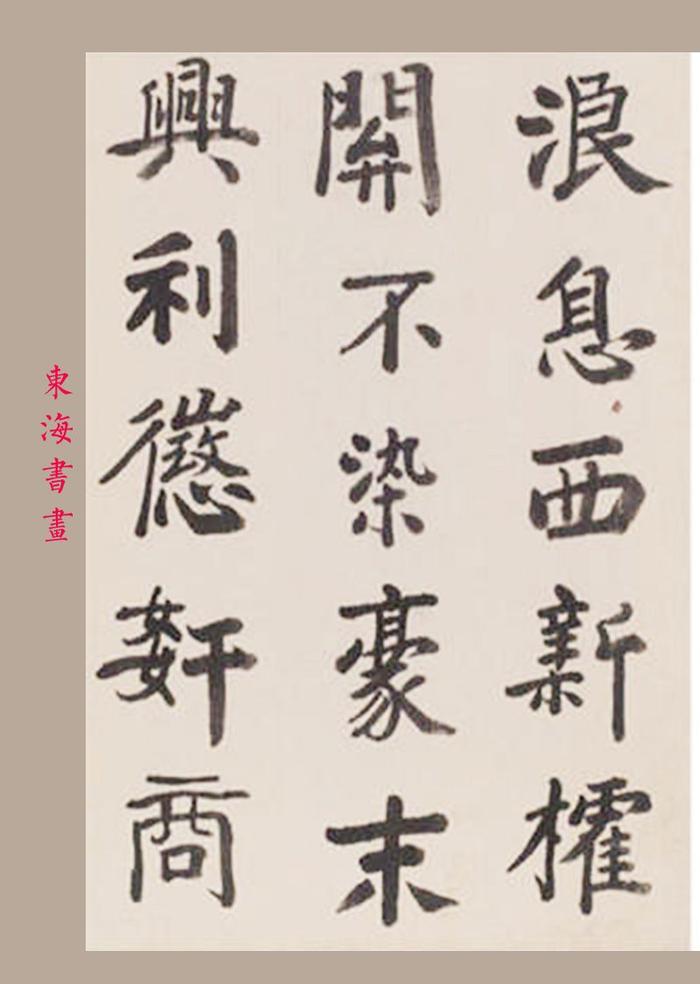 浪息西新權
關不染豪末
興利懲姧商
東海書畫